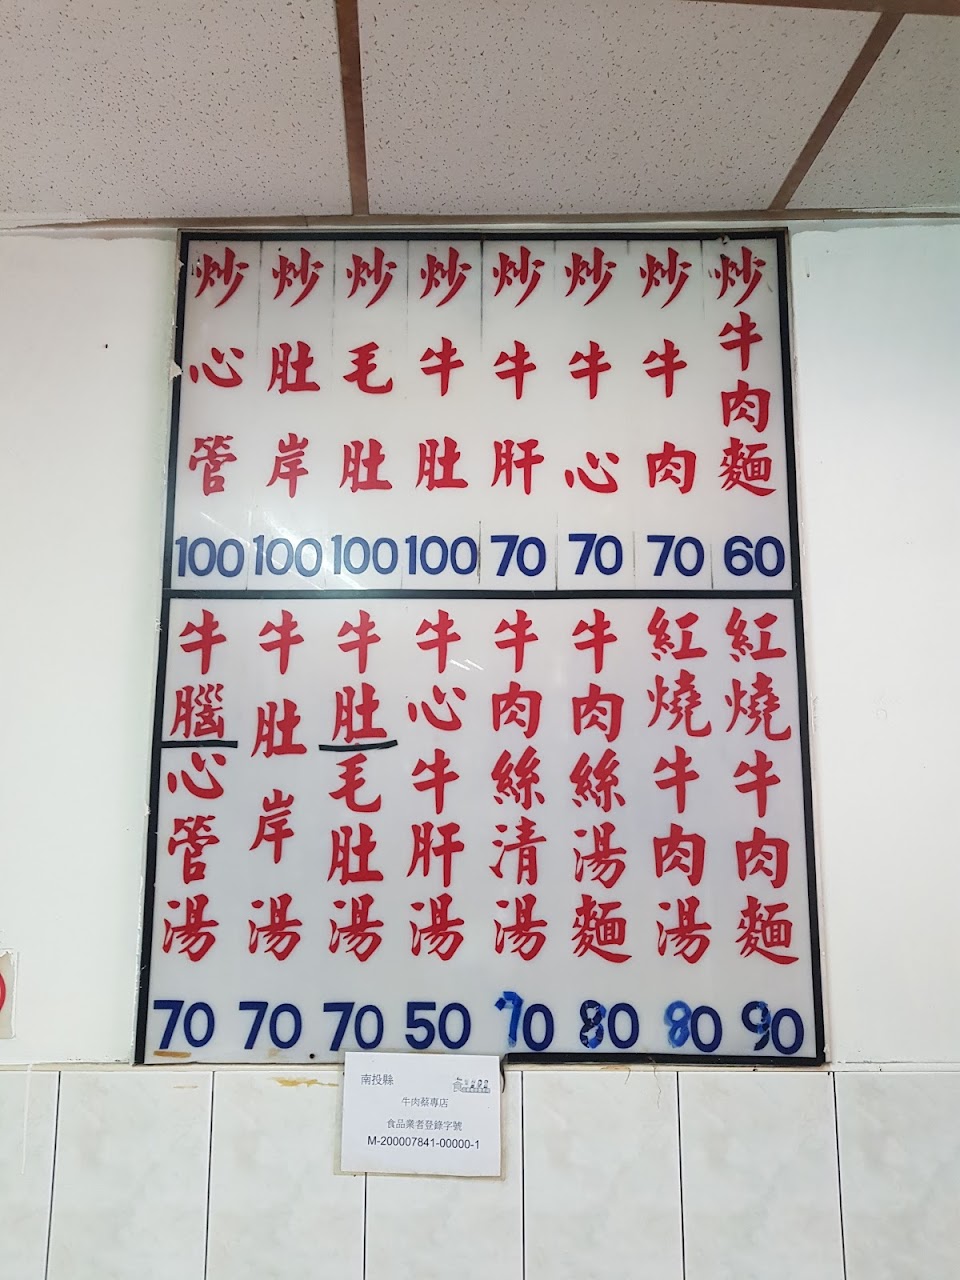 炒牛肉麵 60
炒牛肉 70
炒牛心 70
炒牛肝 70
炒牛肚 100
炒毛肚 100
炒肚岸 100
炒心管 100
紅燒牛肉麵 90
紅燒牛肉湯 80
牛肉絲湯麵 80
牛肉絲清湯 70
牛心牛肝湯 50
牛肚毛肚湯 70
牛肚岸湯 70
牛腦心管湯 70
南投縣
牛肉蔡專店
食品業者登錄字號
M-200007841-00000-1